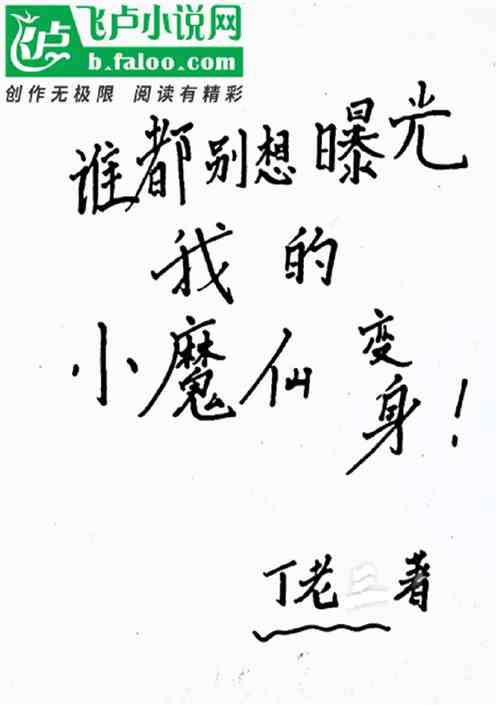 飞卢小说网
b.faloo.com
创作无极限 阅读有精彩
谁都别想曝光
我的
小魔仙变身!
丁老三著